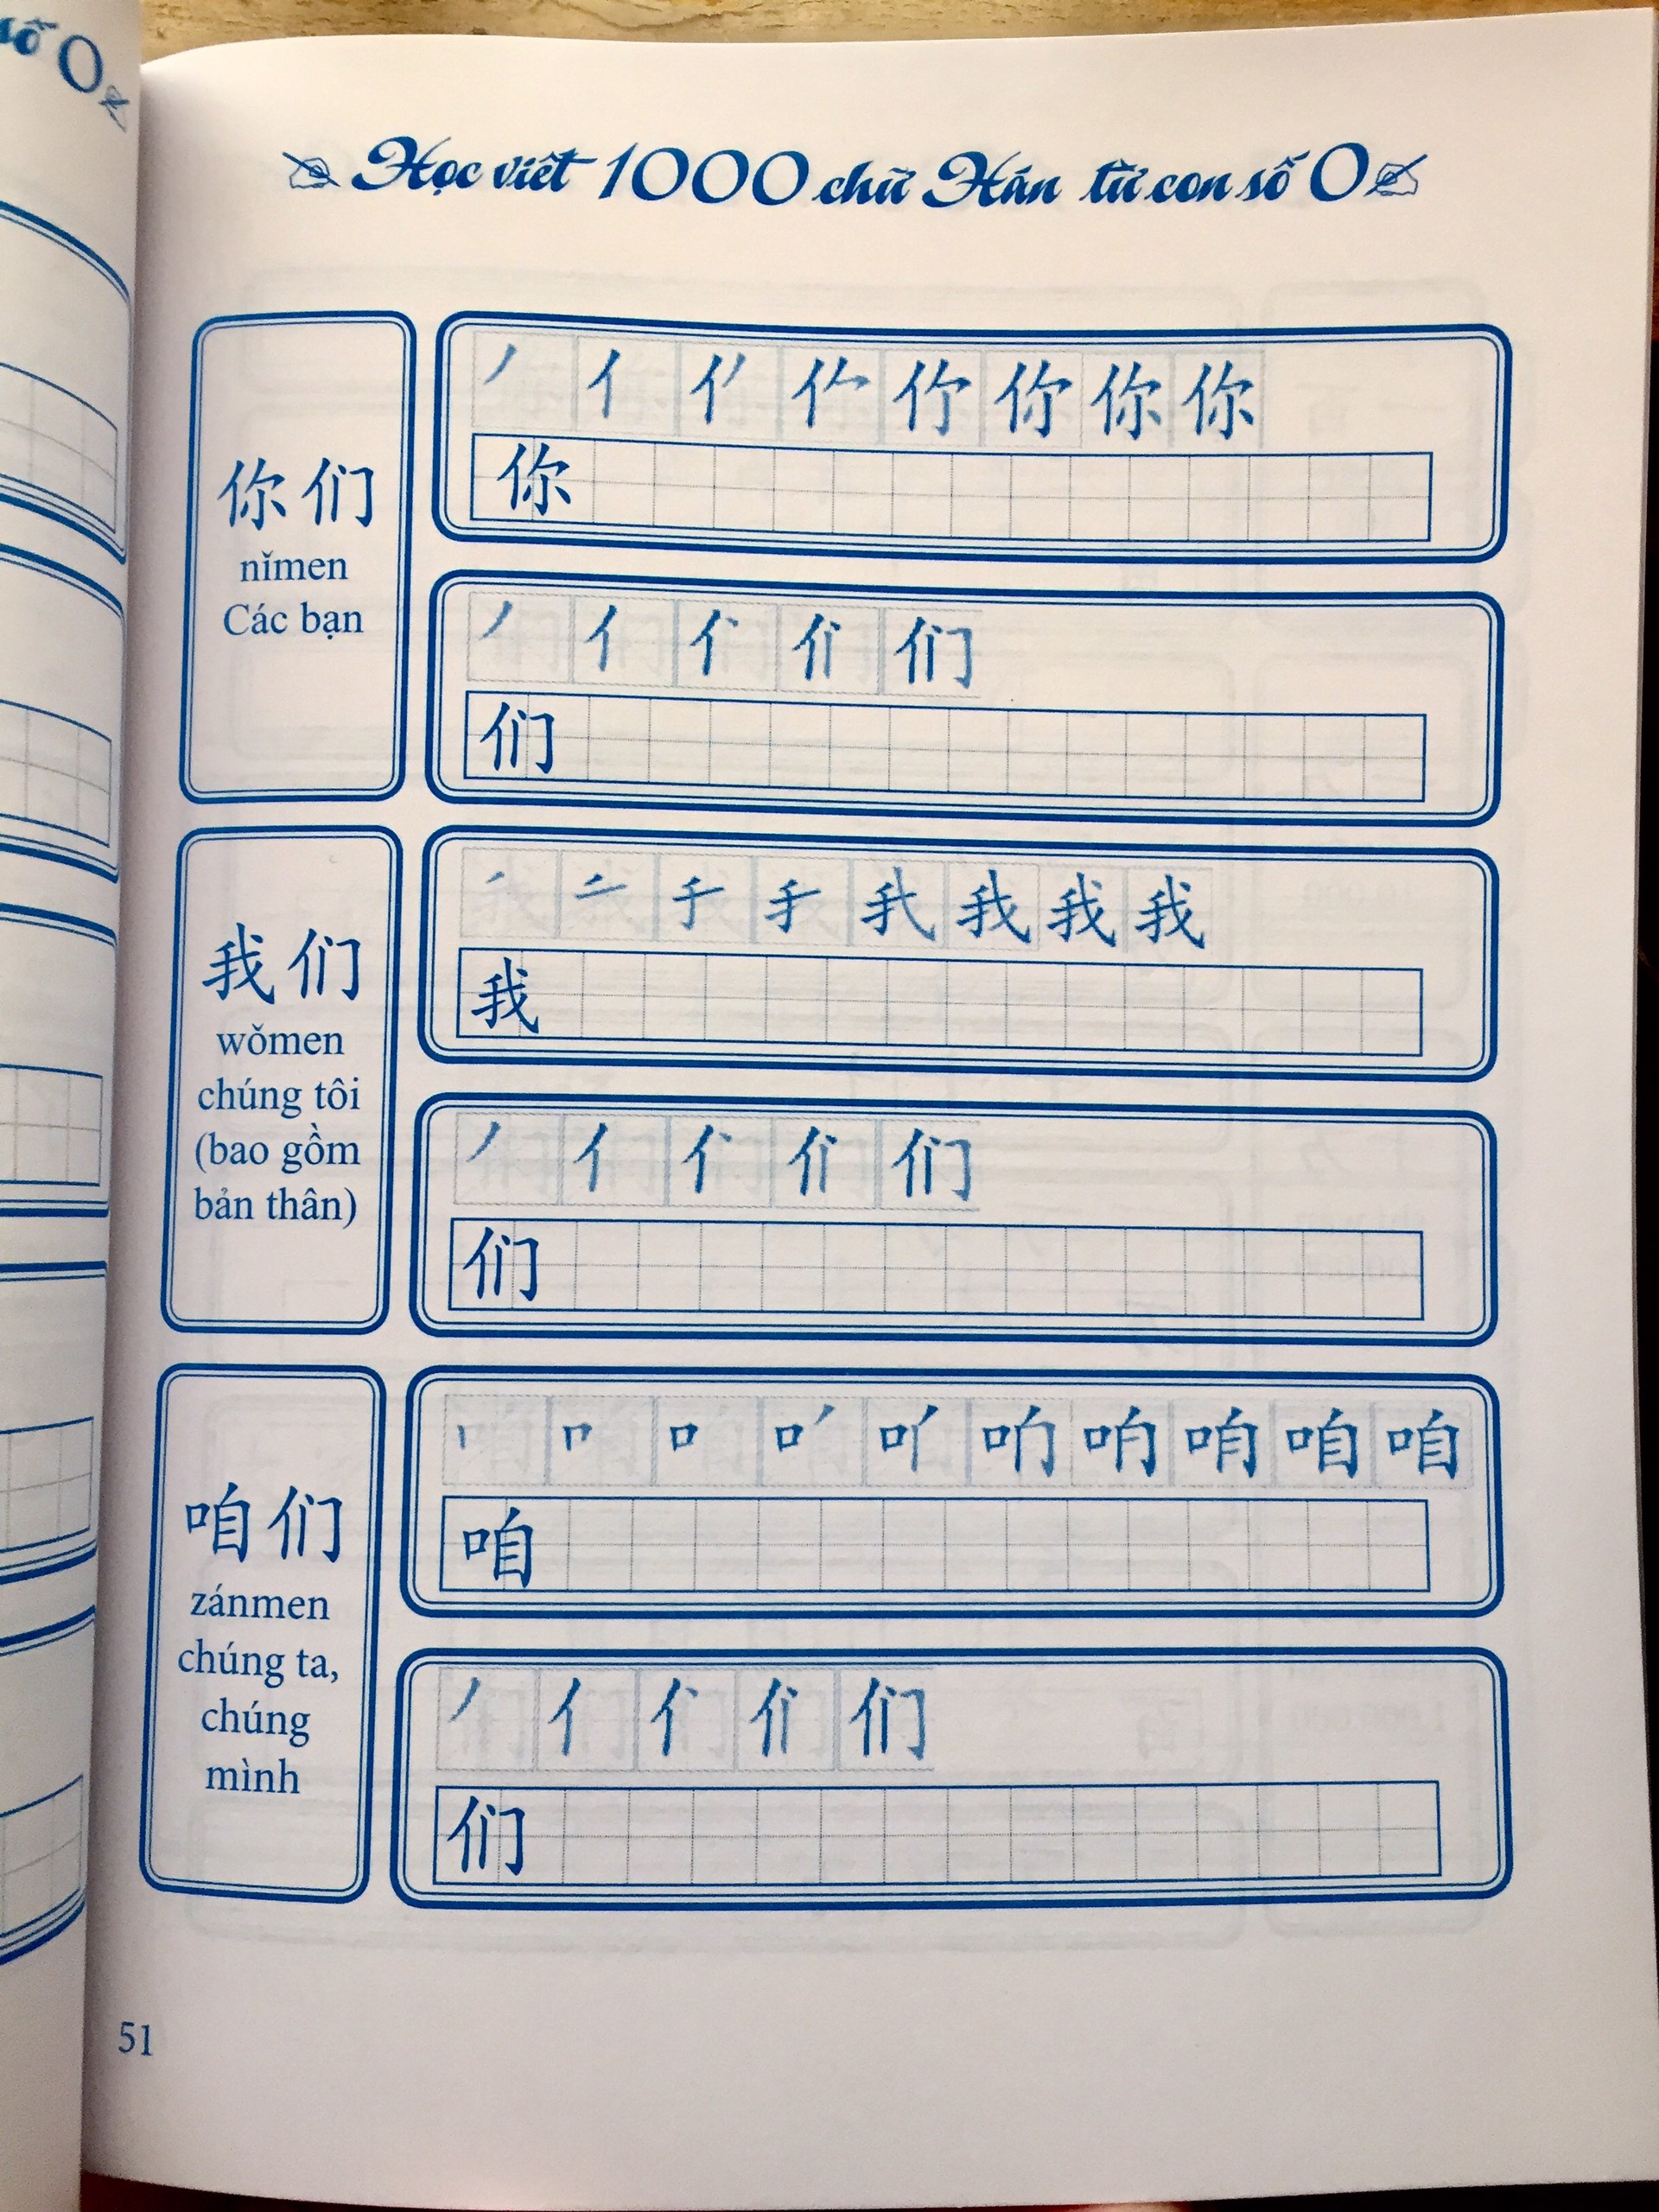 số 0
Học viết 1000 chữ Hán từ con số 0
你们
nǐmen
Các bạn
丿 亻 你 你
你
丿 亻 们
们
我们
wǒmen
chúng tôi
(bao gồm
bản thân)
我 我
我
丿 亻 们
们
咱们
zánmen
chúng ta,
chúng
mình
丨 口 咱 咱
咱
丿 亻 们
们
51